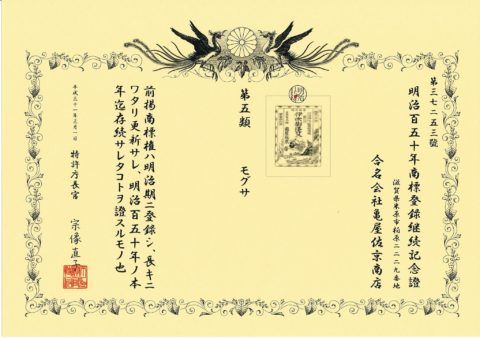 第三七二五三號
明治百五十年商標登録継続記念證
滋賀県米原市柏原二二二九番地
合名会社亀屋佐京商店
第五類　モグサ
前掲商標権ハ明治期ニ登録シ、長キニ
ワタリ更新サレ、明治百五十年ノ本
年迄存続サレタコトヲ證スルモノ也
平成三十一年三月一日
特許庁長官　宗像直子